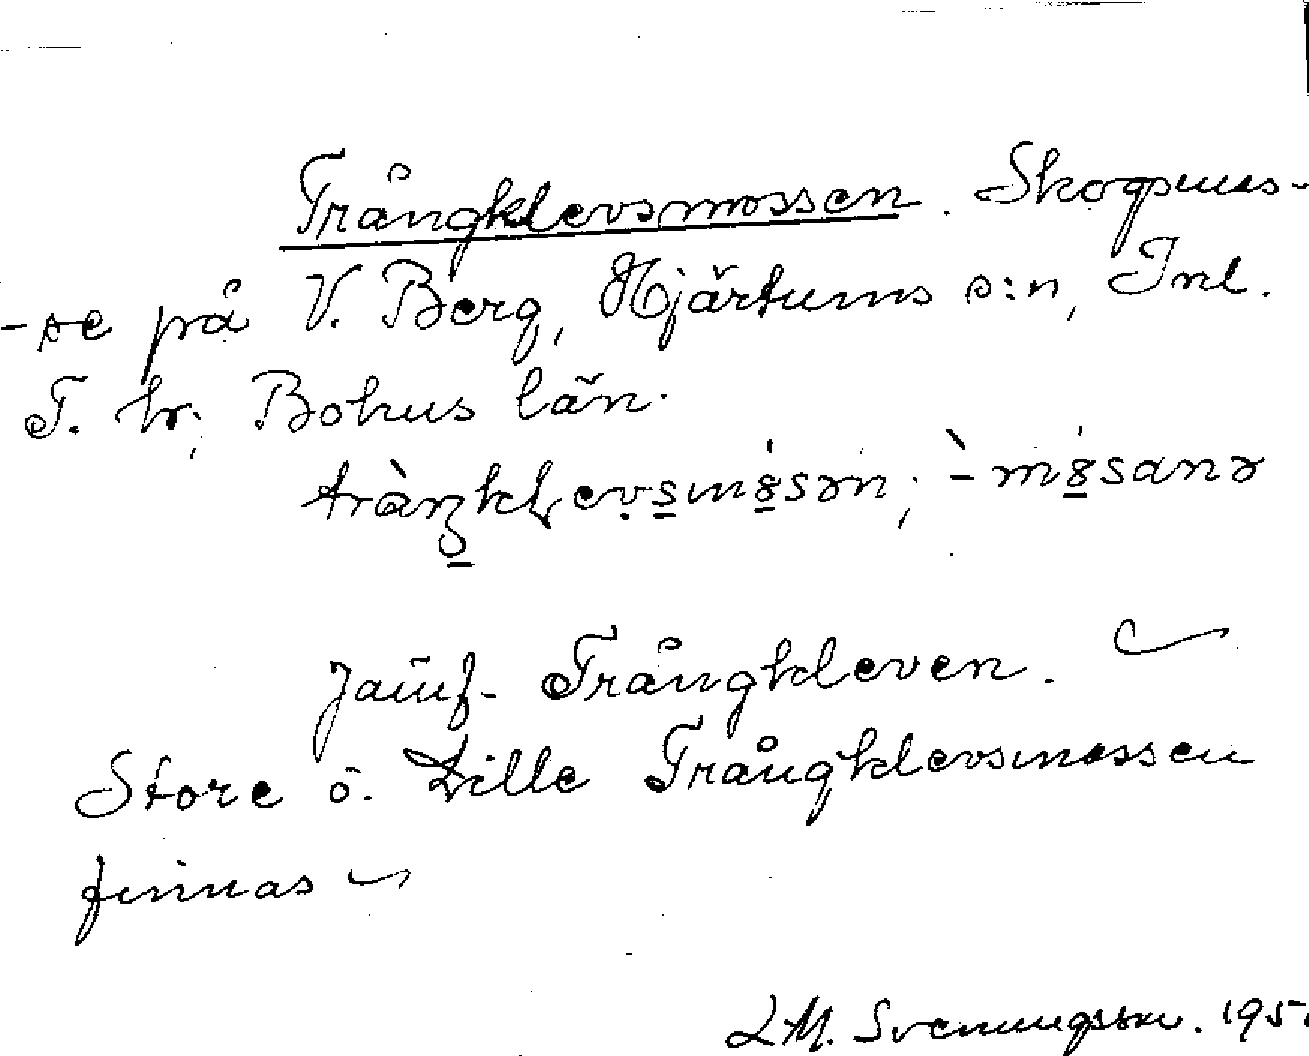 Trångklevsmossen. Skogsmos-
-se på V. Berg, Hjärtums s:n, Inl.
T. hr; Bohus län.
Jämf. Trångkleven.
Store o. Lille Trångklevsmossen
finnas
L M. Svenungsson. 195